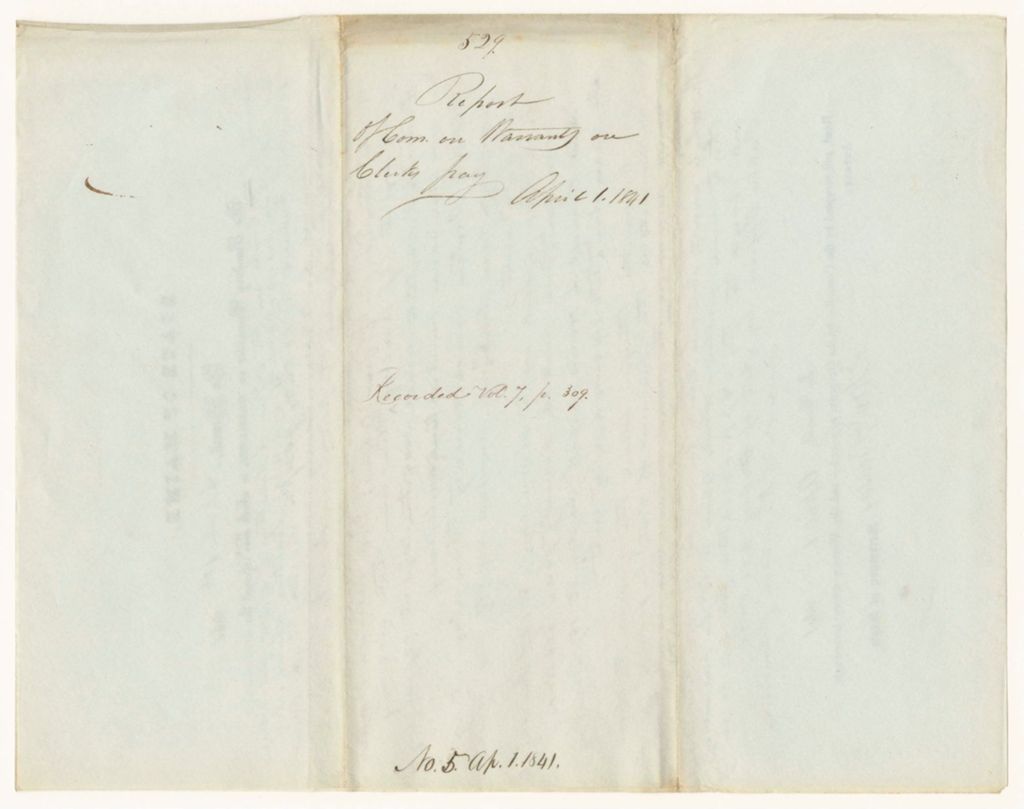 529.
Report
Of Com. on Warrants on
Clerks pay
April 1. 1841
Recorded Vol. 7, p. 309.
No. 5. Ap. 1. 1841.